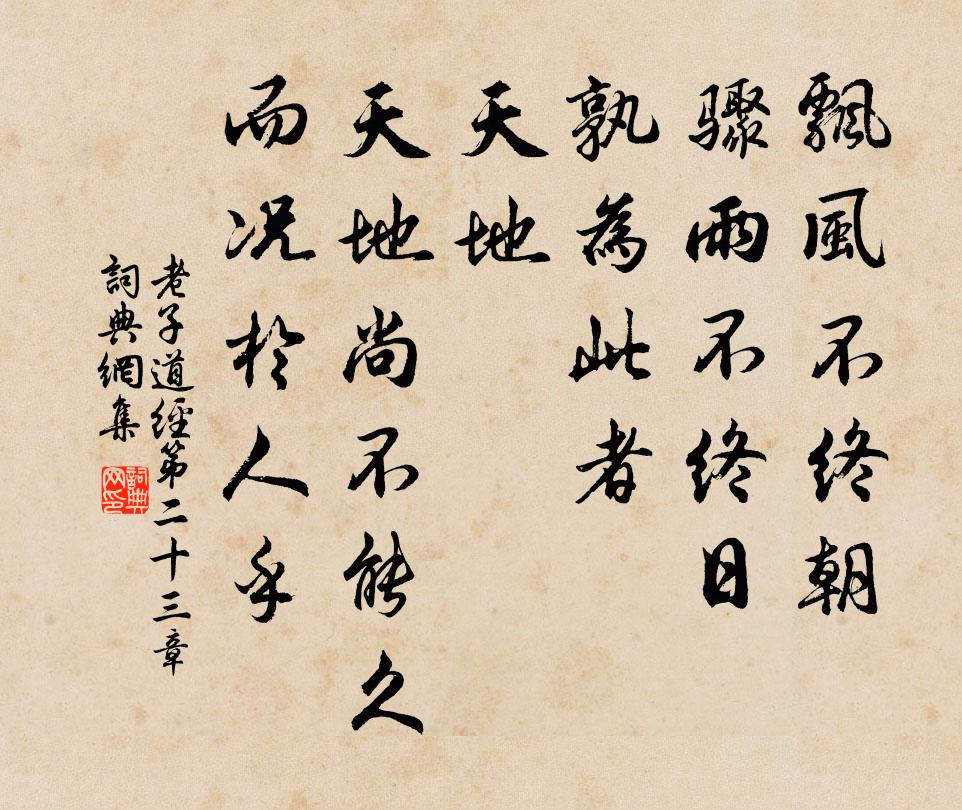 飄風不終朝
驟雨不終日
孰為此者
天地
天地尚不能久
而況於人乎
老子道經第二十三章
詞典網集
詞典网印